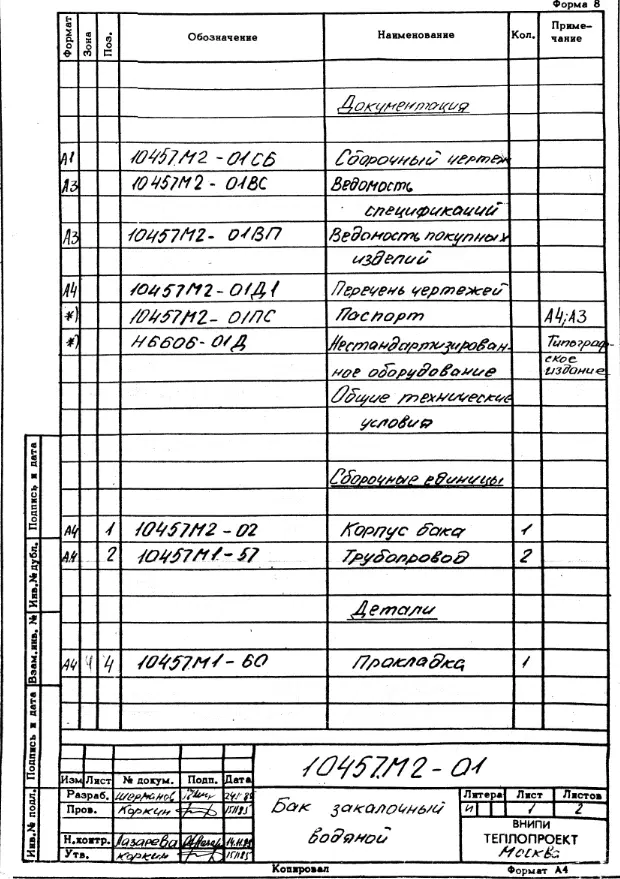 Форма 8
Формат Зона Поз. Обозначение Наименование Кол. Приме-
чание
Документация
А1 10457М2-01СБ Сборочный чертеж
А3 10457М2-01ВС Ведомость
спецификаций
А3 10457М2-01ВП Ведомость покупных
изделий
А4 10457М2-01Д1 Перечень чертежей
*) 10457М2-01ПС Паспорт А4;А3
*) Н6606-01Д Нестандартизирован- Типограф-
ное оборудование ское
издание
Общие технические
условия
Сборочные единицы
А4 1 10457М2-02 Корпус бака 1
А4 2 10457М1-57 Трубопровод 2
Детали
А4 4 4 10457М1-60 Прокладка 1
Инв.№ подл. Подпись и дата Взам.инв. № Инв.№ дубл. Подпись и дата
10457.М2-01
Изм Лист № докум. Подп. Дата
Разраб.
Пров. Коркин
Н.контр. Лазарева
Утв. Коркин
Бак закалочный
водяной
Литера Лист Листов
И 1 2
ВНИПИ
ТЕПЛОПРОЕКТ
Москва
Копировал Формат А4